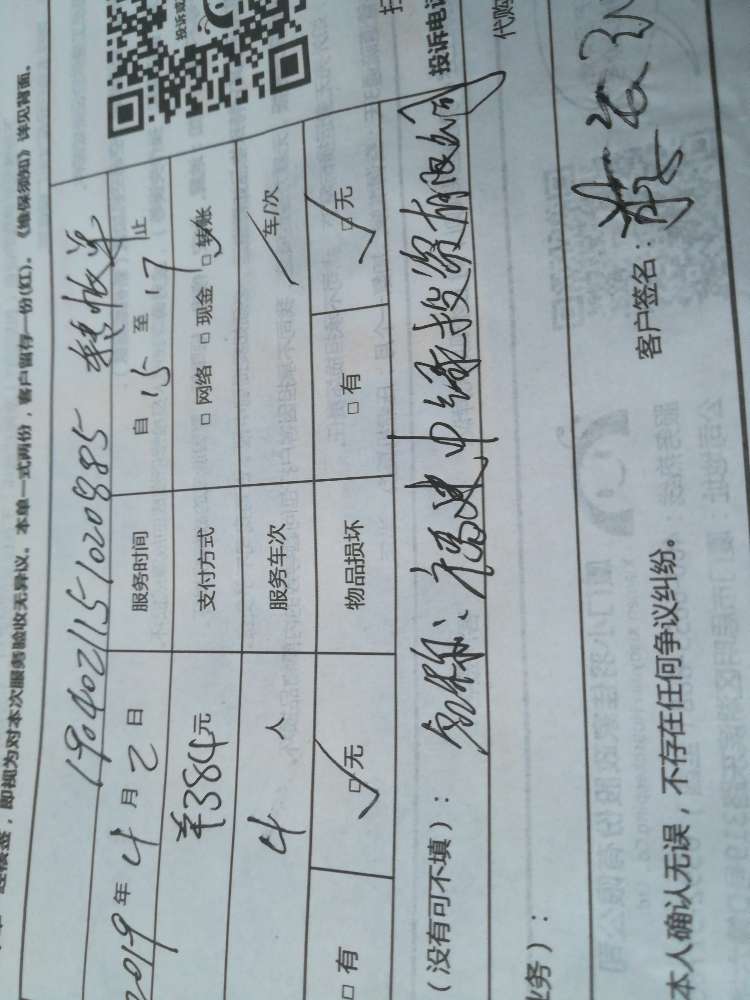 连续签，即视为对本次服务验收无异议。本单一式两份，客户留存一份(红)。《维保须知》详见背面。
投诉或
扫
投诉电话
代购
1904021151020885 转账单
2019年4月2日 服务时间 自15至17止
¥384元 支付方式 □网络 □现金 □转账
4人 服务车次 车/次
□有 □无 物品损坏 □有 □无
（没有可不填）： 名称：福建中绿投资有限公司
业务）：
客户签名：
本人确认无误，不存在任何争议纠纷。